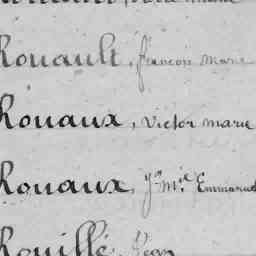 Rouault, françois Marie
Rouaux, Victor marie
Rouaux, Jn Mie Emmanuel
Rouillé, Léon